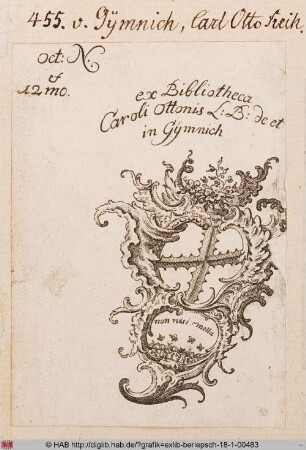 455. v. Gÿmnich, Carl Otto Freih.
Oct: N.
et
12mo.
ex Bibliotheca
Caroli Ottonis L: B: de et
in Gÿmnich
non nisi mella
© HAB http://diglib.hab.de/?grafik=exlib-berlepsch-18-1-00483